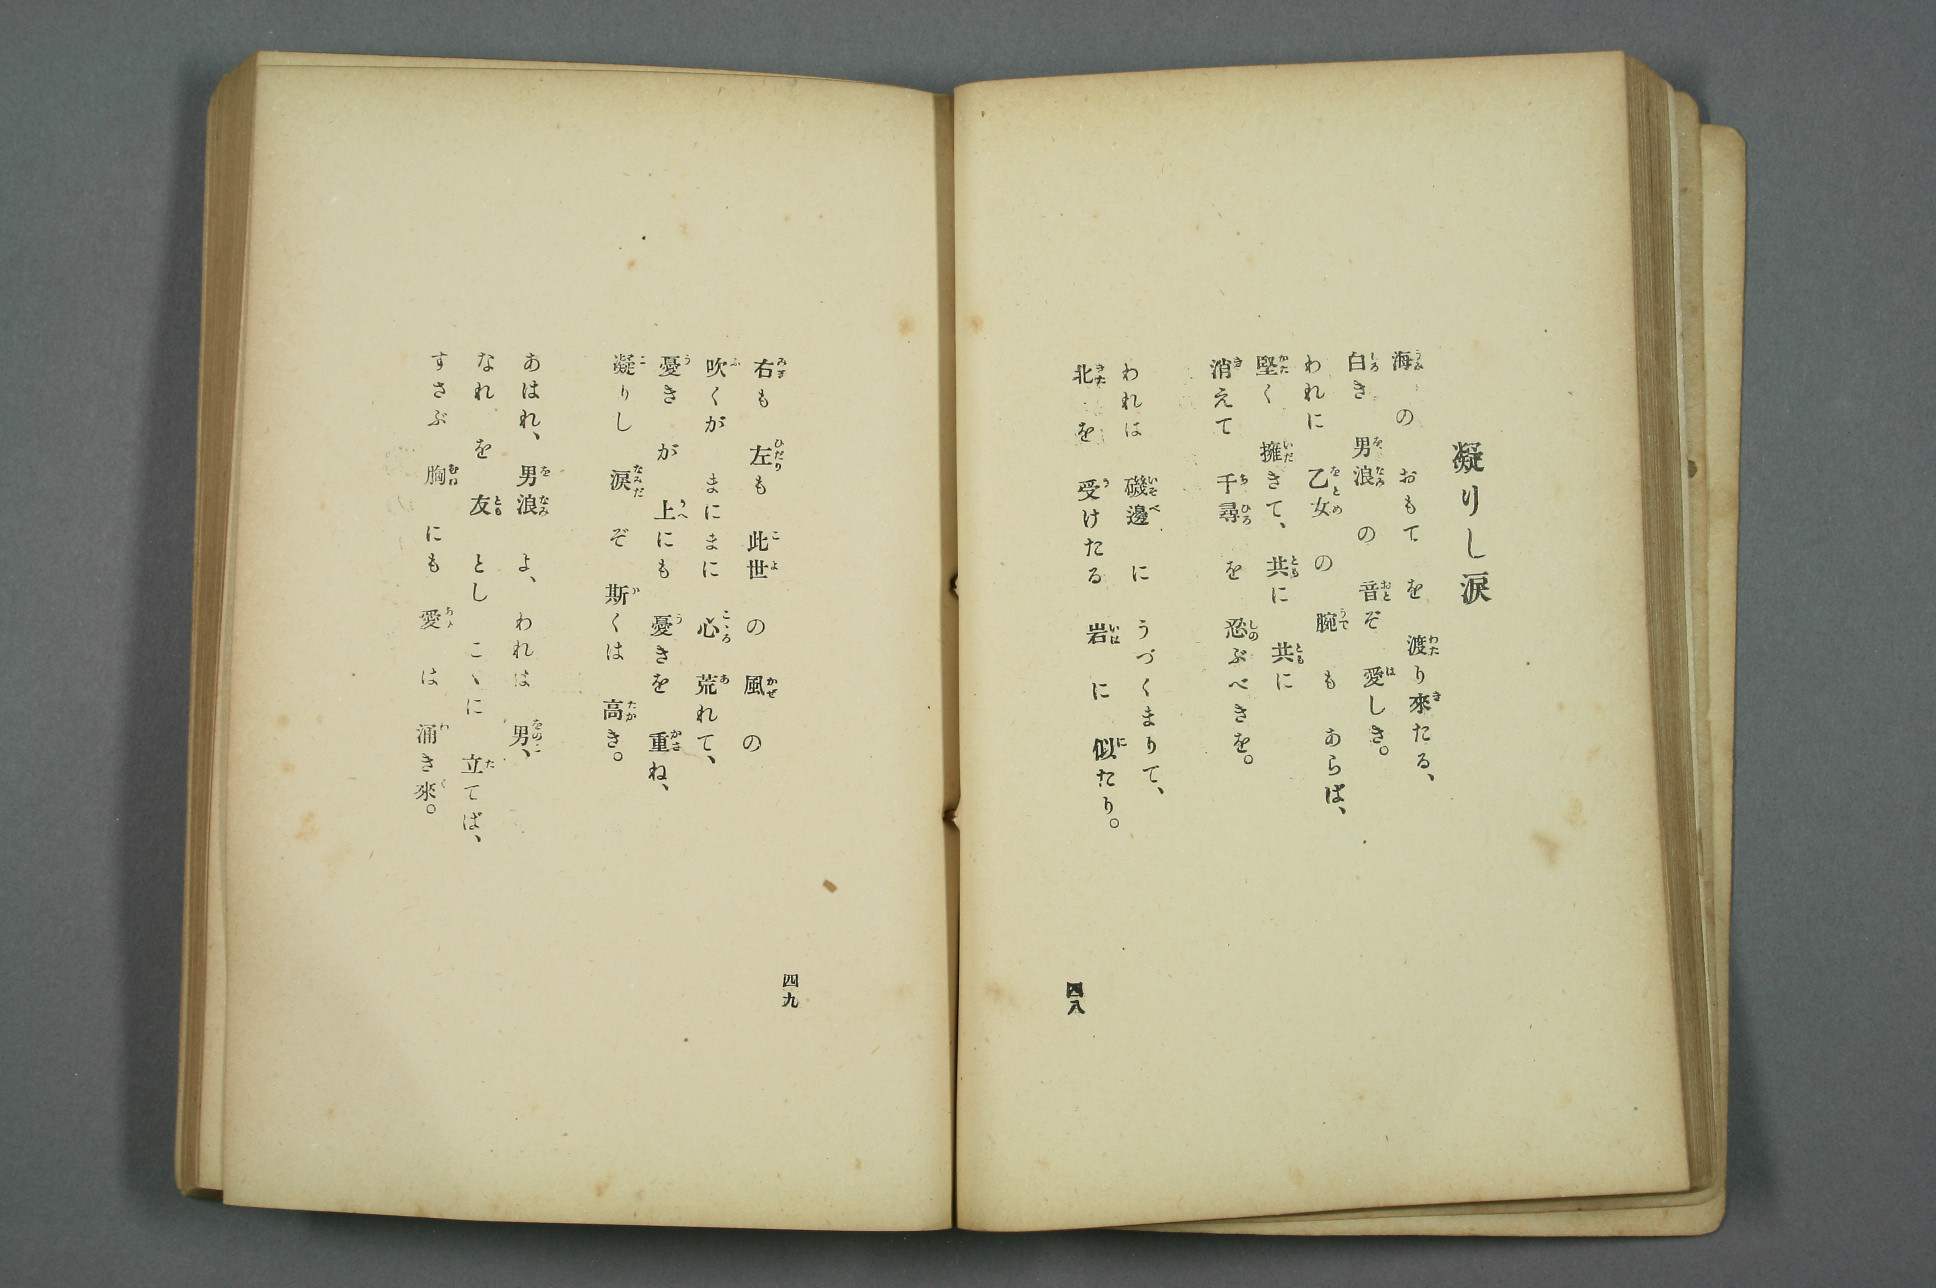 凝りし涙
海のおもてを渡り來たる、
白き男浪の音ぞ愛しき。
われに乙女の腕もあらば、
堅く擁きて、共に共に
消えて千尋を忍ぶべきを。
われは磯邊にうづくまりて、
北を受けたる岩に似たり。
四八
右も左も此世の風の
吹くがまにまに心荒れて、
憂きが上にも憂きを重ね、
凝りし涙ぞ斯くは高き。
あはれ、男浪よ、われは男、
なれを友としこゝに立てば、
すさぶ胸にも愛は涌き來。
四九